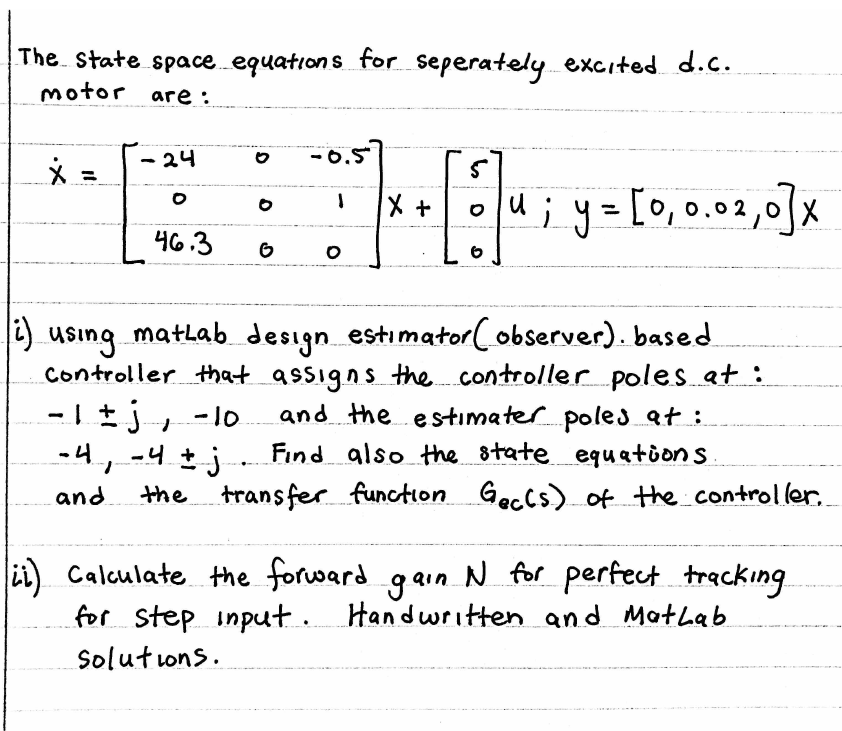 The state space equations for seperately excited d.c.
motor are :
ẋ = [ -24 0 -0.5 ; 0 0 1 ; 46.3 0 0 ] x + [ 5 ; 0 ; 0 ] u ; y = [0, 0.02, 0] x
i) using matLab design estimator (observer). based
controller that assigns the controller poles at :
-1 ± j , -10 and the estimater poles at :
-4 , -4 ± j . Find also the state equations
and the transfer function Gec(s) of the controller.
ii) Calculate the forward gain N for perfect tracking
for step input. Handwritten and MatLab
solutions.